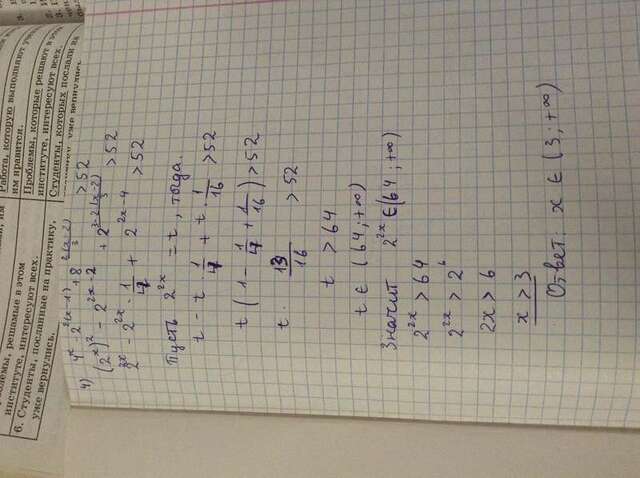 Проблемы, решаемые в этом
институте, интересуют всех.
6. Студенты, посланные на практику,
уже вернулись.
Работа, которую выполняют
им нравится.
Проблемы, которые решают в
институте, интересуют всех.
Студенты, которых послали на
уже вернулись.
4) 4^x - 2^{2(x-1)} + 8^{\frac{2(x-2)}{3}} > 52
(2^x)^2 - 2^{2x-2} + 2^{\frac{3·2(x-2)}{3}} > 52
2^{2x} - 2^{2x} · \frac{1}{4} + 2^{2x-4} > 52
Пусть 2^{2x} = t, тогда.
t - t · \frac{1}{4} + t · \frac{1}{16} > 52
t ( 1 - \frac{1}{4} + \frac{1}{16} ) > 52
t · \frac{13}{16} > 52
t > 64
t ∈ (64; +∞)
Значит 2^{2x} ∈ (64; +∞)
2^{2x} > 64
2^{2x} > 2^6
2x > 6
x > 3
Ответ: x ∈ (3; +∞)